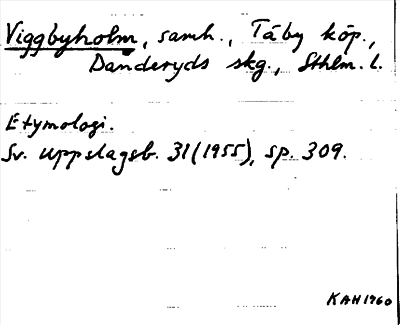 Viggbyholm, samh., Täby köp.,
Danderyds skg., Sthlm. l.
Etymologi.
Sv. uppslagsb. 31 (1955), sp. 309.
KAH 1960